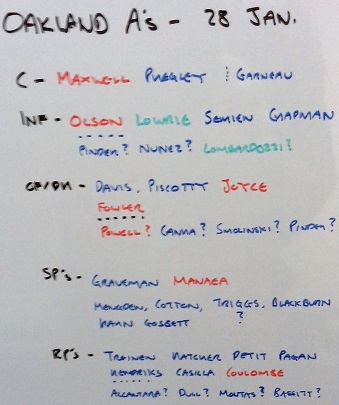 OAKLAND A's - 28 JAN.
C - MAXWELL PHEGLEY GARNEAU
INF - OLSON LOWRIE SEMIEN CHAPMAN
PINDER? NUNEZ? LOMBARDOZZI?
OF/DH - DAVIS, PISCOTTY JOYCE
FOWLER
POWELL? CANHA? SMOLINSKI? PINDER?
SP's - GRAVEMAN MANAEA
MENGDEN, COTTON, TRIGGS, BLACKBURN
HAHN GOSSETT ?
RP's - TREINEN HATCHER PETIT PAGAN
HENDRIKS CASILLA COULOMBE
ALCANTARA? DULL? MONTAS? BASSITT?